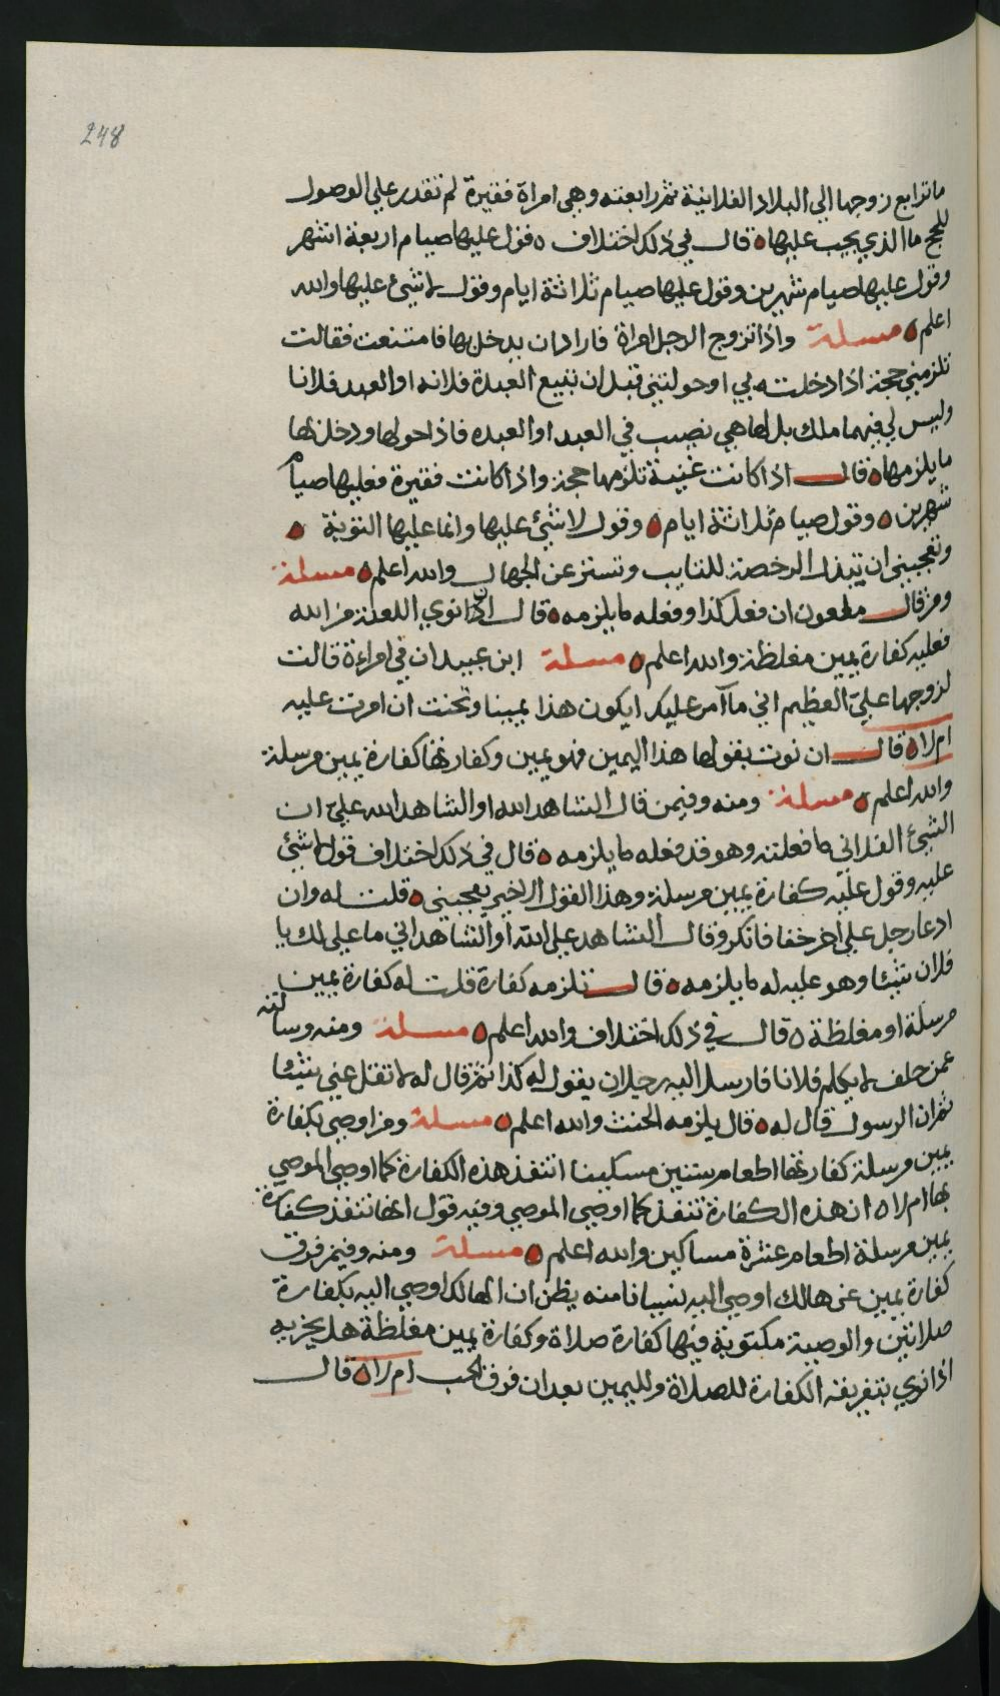 248
ما ترابع زوجها الي البلاد الفلانية ثم رابعته وهي امراة فقيرة لم تقدر علي الوصول
للحج ما الذي يجب عليها ه قال في ذلك اختلاف ه فقول عليها صيام اربعة اشهر
وقول عليها صيام شهرين وقول عليها صيام ثلاثة ايام وقول لا شيء عليها والله
اعلم ه مسلة واذا تزوج الرجل امراة فاراد ان يدخل بها فامتنعت فقالت
تلزمني حجة اذا دخلت لي او حولتني قبل ان تبيع العبدة فلانه او العبد فلانا
وليس لي فيهما ملك بل لها هي نصيب في العبد او العبده فاذا حولها ودخل بها
ما يلزمها ه قال اذا كانت غنية تلزمها حجة واذا كانت فقيرة فعليها صيام
شهرين ه وقول صيام ثلاثة ايام ه وقول لا شيء عليها وانما عليها التوبة ه
وتعجبني ان تبذل الرخصة للتايب وتستر عن الجهال والله اعلم ه مسلة
ومن قال ملعون ان فعل كذا وفعله ما يلزمه ه قال اذا نوي اللعنة من الله
فعليه كفارة يمين مغلظة والله اعلم ه مسلة ابن عبيدان في امراءة قالت
لزوجها عليّ العظيم اني ما آمر عليك ايكون هذا يمينا وتحنث ان امرت عليه
ام لا ه قال ان نوت بقولها هذا اليمين فهو يمين وكفارتها كفارة يمين مرسلة
والله اعلم ه مسلة ومنه وفيمن قال الشاهد الله او الشاهد الله عليّ ان
الشيء الفلاني ما فعلته وهو قد فعله ما يلزمه ه قال في ذلك اختلاف قول لا شيء
عليه وقول عليه كفارة يمين مرسلة وهذا القول الاخير يعجبني ه قلت له وان
ادعا رجل علي اخر حقا فانكر وقال الشاهد علي الله او الشاهد اني ما علي لك يا
فلان شيئا وهو عليه له ما يلزمه ه قال تلزمه كفارة قلت له كفارة يمين
مرسلة او مغلظة ه قال في ذلك اختلاف والله اعلم ه مسلة ومنه وسالته
عمن حلف لا يكلم فلانا فارسل اليه رجلا ان يقول له كذا ثم قال له لا تقل عني شيئا
ثم ان الرسول قال له ه قال يلزمه الحنث والله اعلم ه مسلة ومن اوصي بكفارة
يمين مرسلة كفارتها اطعام ستين مسكينا اتنفذ هذه الكفارة كما اوصي الموصي
بها ام لا ه ان هذه الكفارة تنفذ كما اوصي الموصي وفيه قول انها تنفذ كفارة
يمين مرسلة اطعام عشرة مساكين والله اعلم ه مسلة ومنه وفيمن فرق
كفارة يمين عن هالك اوصي اليه نسيانا منه يظن ان الهالك اوصي اليه بكفارة
صلاتين والوصية مكتوبة فيها كفارة صلاة وكفارة يمين مغلظة هل يجزيه
اذا نوي بتفريقه الكفارة للصلاة ولليمين بعد ان فرق الحب ام لا ه قال